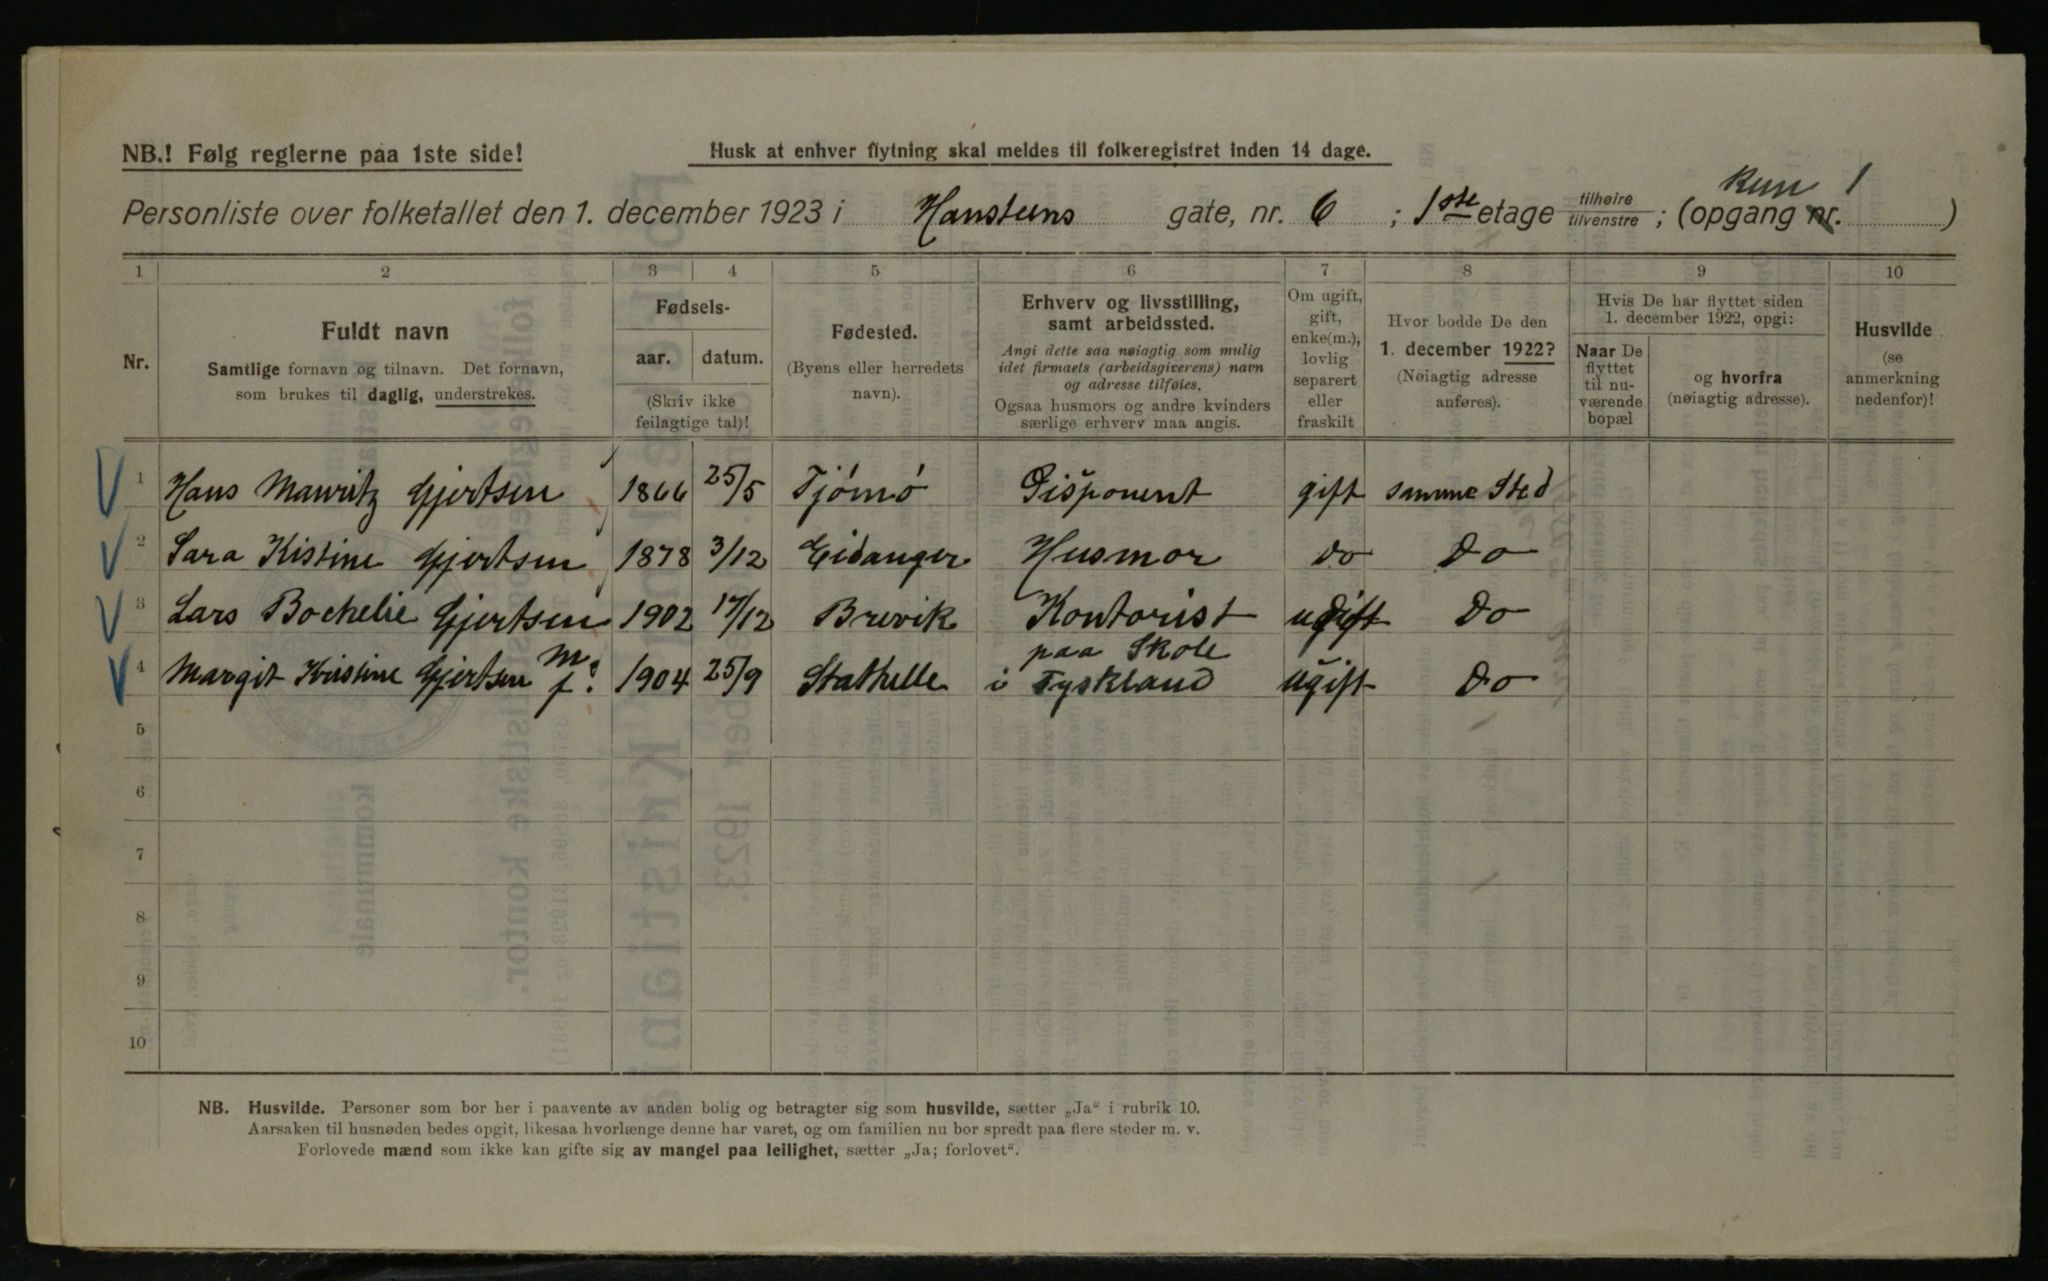 NB.! Følg reglerne paa 1ste side!
Husk at enhver flytning skal meldes til folkeregistret inden 14 dage.
kun 1
Personliste over folketallet den 1. december 1923 i Hansteens gate, nr. 6 ; 1ste etage tilhøire/tilvenstre ; (opgang nr. )
1 2 3 4 5 6 7 8 9 10
Nr.
Fuldt navn
Samtlige fornavn og tilnavn. Det fornavn,
som brukes til daglig, understrekes.
Fødsels-
aar. datum.
(Skriv ikke
feilagtige tal)!
Fødested.
(Byens eller herredets
navn).
Erhverv og livsstilling,
samt arbeidssted.
Angi dette saa nøiagtig som mulig
idet firmaets (arbeidsgiverens) navn
og adresse tilføies.
Ogsaa husmors og andre kvinders
særlige erhverv maa angis.
Om ugift,
gift,
enke(m.),
lovlig
separert
eller
fraskilt
Hvor bodde De den
1. december 1922?
(Nøiagtig adresse
anføres).
Hvis De har flyttet siden
1. december 1922, opgi:
Naar De
flyttet
til nu-
værende
bopæl
og hvorfra
(nøiagtig adresse).
Husvilde
(se
anmerkning
nedenfor)!
1 Hans Mauritz Gjertsen 1866 25/5 Tjömö Disponent gift samme Sted
2 Sara Kistine Gjertsen 1878 3/12 Eidanger Husmor do do
3 Lars Bochelie Gjertsen 1902 17/12 Brevik Kontorist ugift do
4 Margit Kristine Gjertsen m: f. 1904 25/9 Stathelle paa Skole i Tyskland ugift do
5
6
7
8
9
10
NB. Husvilde. Personer som bor her i paavente av anden bolig og betragter sig som husvilde, sætter „Ja“ i rubrik 10.
Aarsaken til husnøden bedes opgit, likesaa hvorlænge denne har varet, og om familien nu bor spredt paa flere steder m. v.
Forlovede mænd som ikke kan gifte sig av mangel paa leilighet, sætter „Ja; forlovet“.